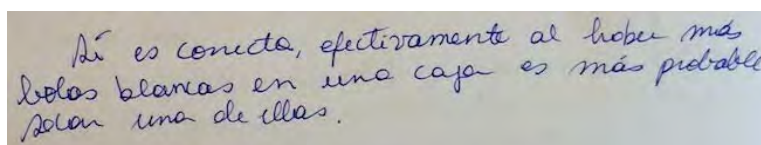 Sí es correcta, efectivamente al haber más
bolas blancas en una caja es más probable
sacar una de ellas.